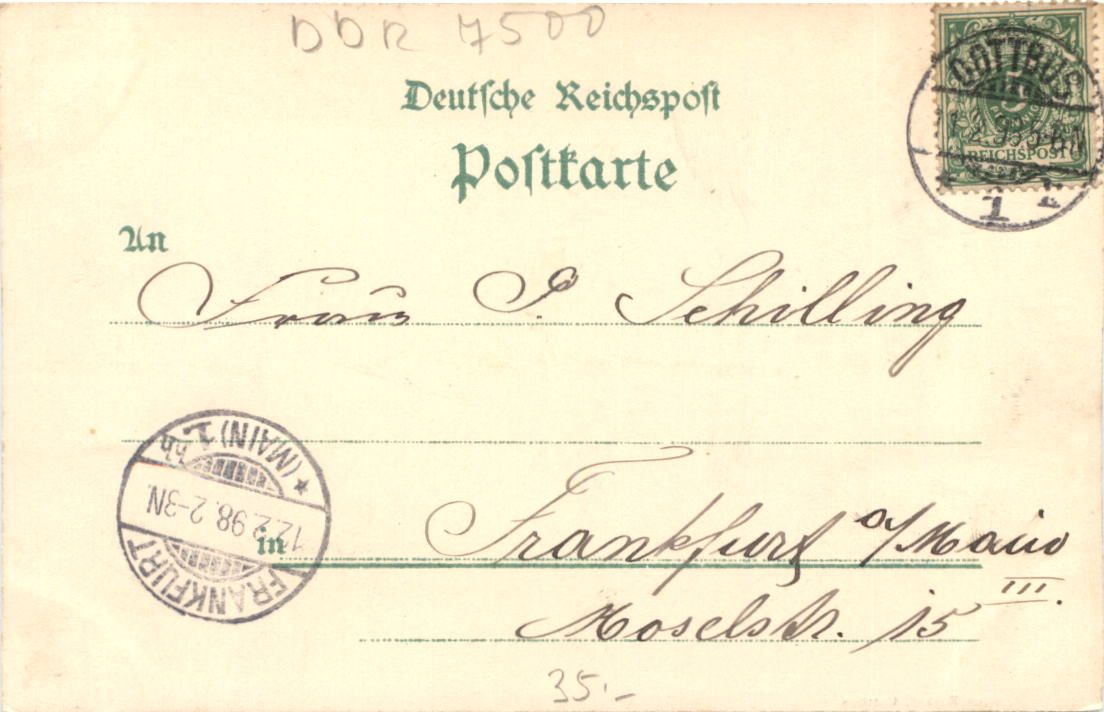 DDR 7500
Deutsche Reichspost
Postkarte
COTTBUS
5
REICHSPOST
1
An
Frau P. Schilling
(MAIN) 1.
12.2.98. 2-3N.
FRANKFURT
in Frankfurt a/Main
III.
Moselstr. 15
35.-